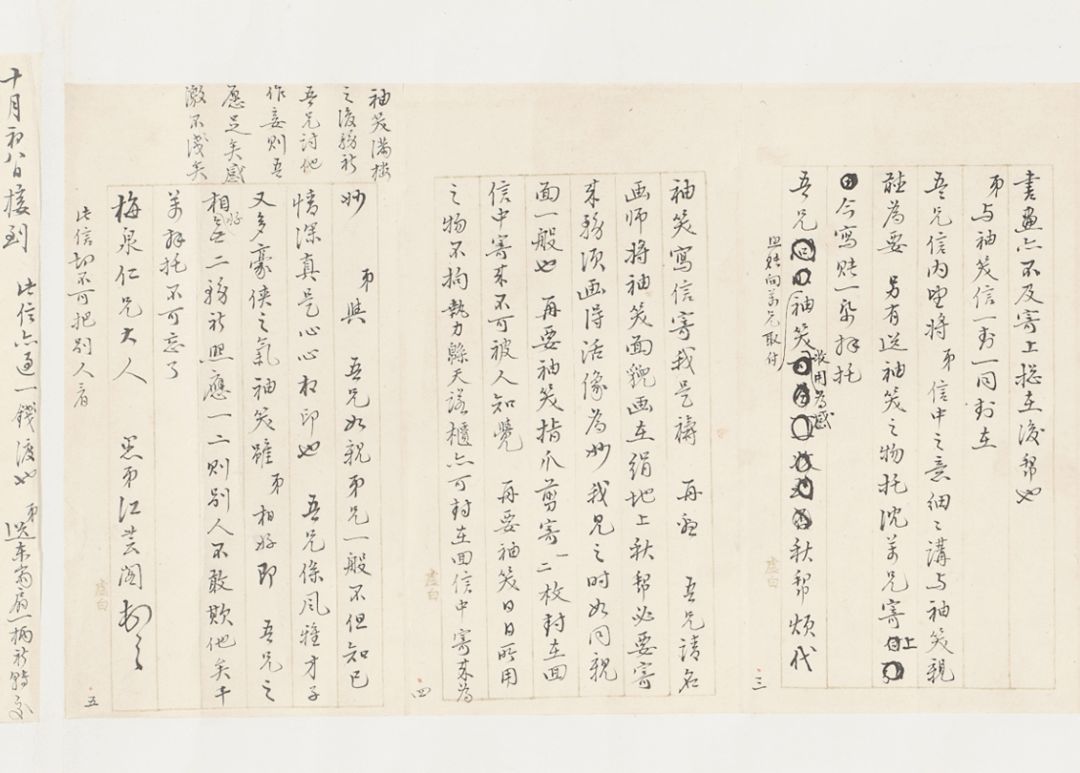 書畫亦不及寄上揔在後幇也
弟与袖笑信一封一同封在
吾兄信内望将弟信中之意細〻講与袖笑親
聴為要 另有送袖笑之物托沈萬兄寄上
今寫賬一帋拜托
吾兄 袖笑 秋幇煩代
收用為感
照賬向萬兄取付
虚白
三
袖笑寫信寄我是祷 再 吾兄請名
画師将袖笑面貌画在絹地上秋幇必要寄
来務須画得活像為妙我見之时如同親
面一般也 再要袖笑指爪剪寄一二枚封在回
信中寄来不可被人知覺 再要袖笑日日所用
之物不拘 亦可封在回信中寄来為
虚白
四
袖笑满
之後務祈
吾兄討他
作妾則吾
愿足矣感
激不淺矣
妙 弟與 吾兄如親弟兄一般不但知己
情深真是心心相印也 吾兄係風雅才子
又多豪俠之氣袖笑雖弟相好即 吾兄之
相好無二務祈照應一二則別人不敢欺他矣千
萬拜托不可忘了
梅泉仁兄大人 愚弟江芸阁
此信切不可把別人看
虚白
五
十月初八日接到 此信亦 弟送 扇一柄祈轉交